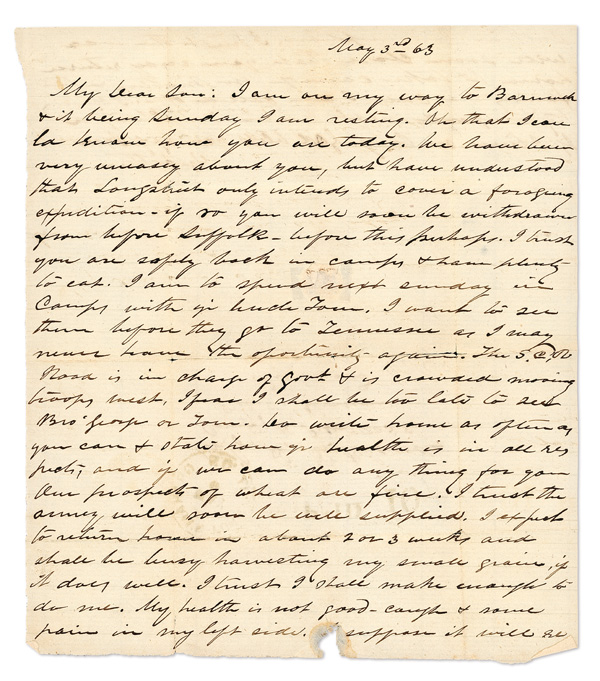 May 3rd 63
My Dear Son: I am on my way to Barnwell
& it being Sunday I am resting. Oh that I cou
ld know how you are today. We have been
very uneasy about you, but have understood
that Longstreet only intends to cover a foraging
expedition - if so you will soon be withdrawn
from before Suffolk - before this perhaps. I trust
you are safely back in camps & have plenty
to eat. I am to spend next sunday in
Camps with yr Uncle Tom. I want to see
them before they go to Tennessee as I may
never have the oportunity again. The S.C.R
Road is in charge of Govt & is crowded moving
troops west. I fear I shall be too late to see
Bro' George or Tom. Do write home as often as
you can & state how yr health is in all res
pects, and if we can do any thing for you
Our prospects of wheat are fine. I trust the
army will soon be well supplied. I expect
to return home in about 2 or 3 weeks and
shall be busy harvesting my small grain, if
it does well. I trust I shall make enough to
do me. My health is not good - cough & some
pain in my left side. suppose it will